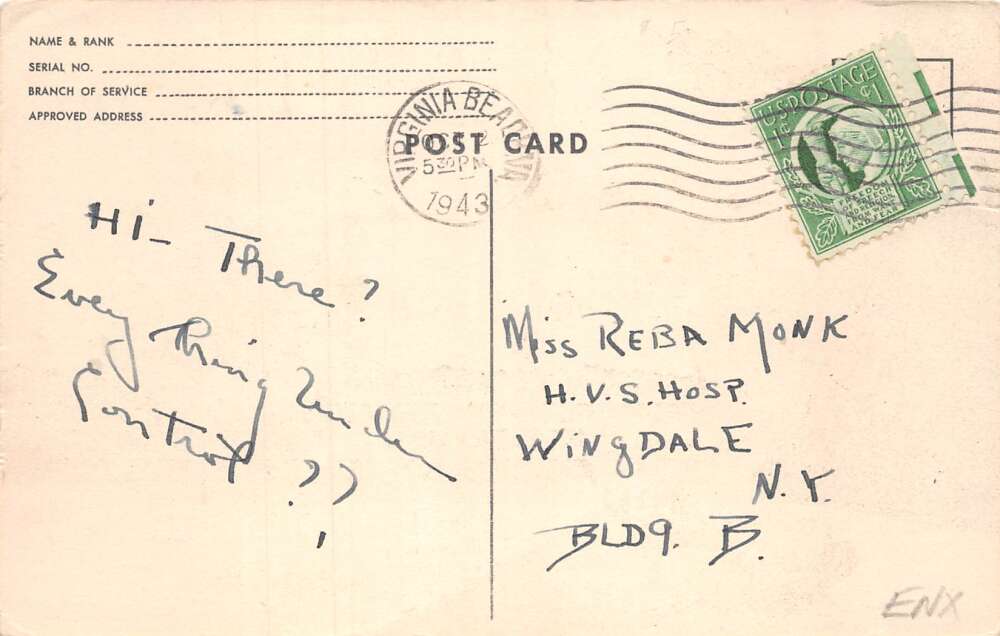 NAME & RANK
SERIAL NO.
BRANCH OF SERVICE
APPROVED ADDRESS
VIRGINIA BEACH, VA
OCT 2
5 30 PM
1943
POST CARD
U.S. POSTAGE
1¢ ¢1
FREEDOM
OF SPEECH
AND RELIGION
FROM WANT
AND FEAR
Hi- There?
Every thing Under
Control ??
Miss REBA MONK
H.V.S. HOSP.
WingDALE
N.Y.
BLD9. B.
ENX